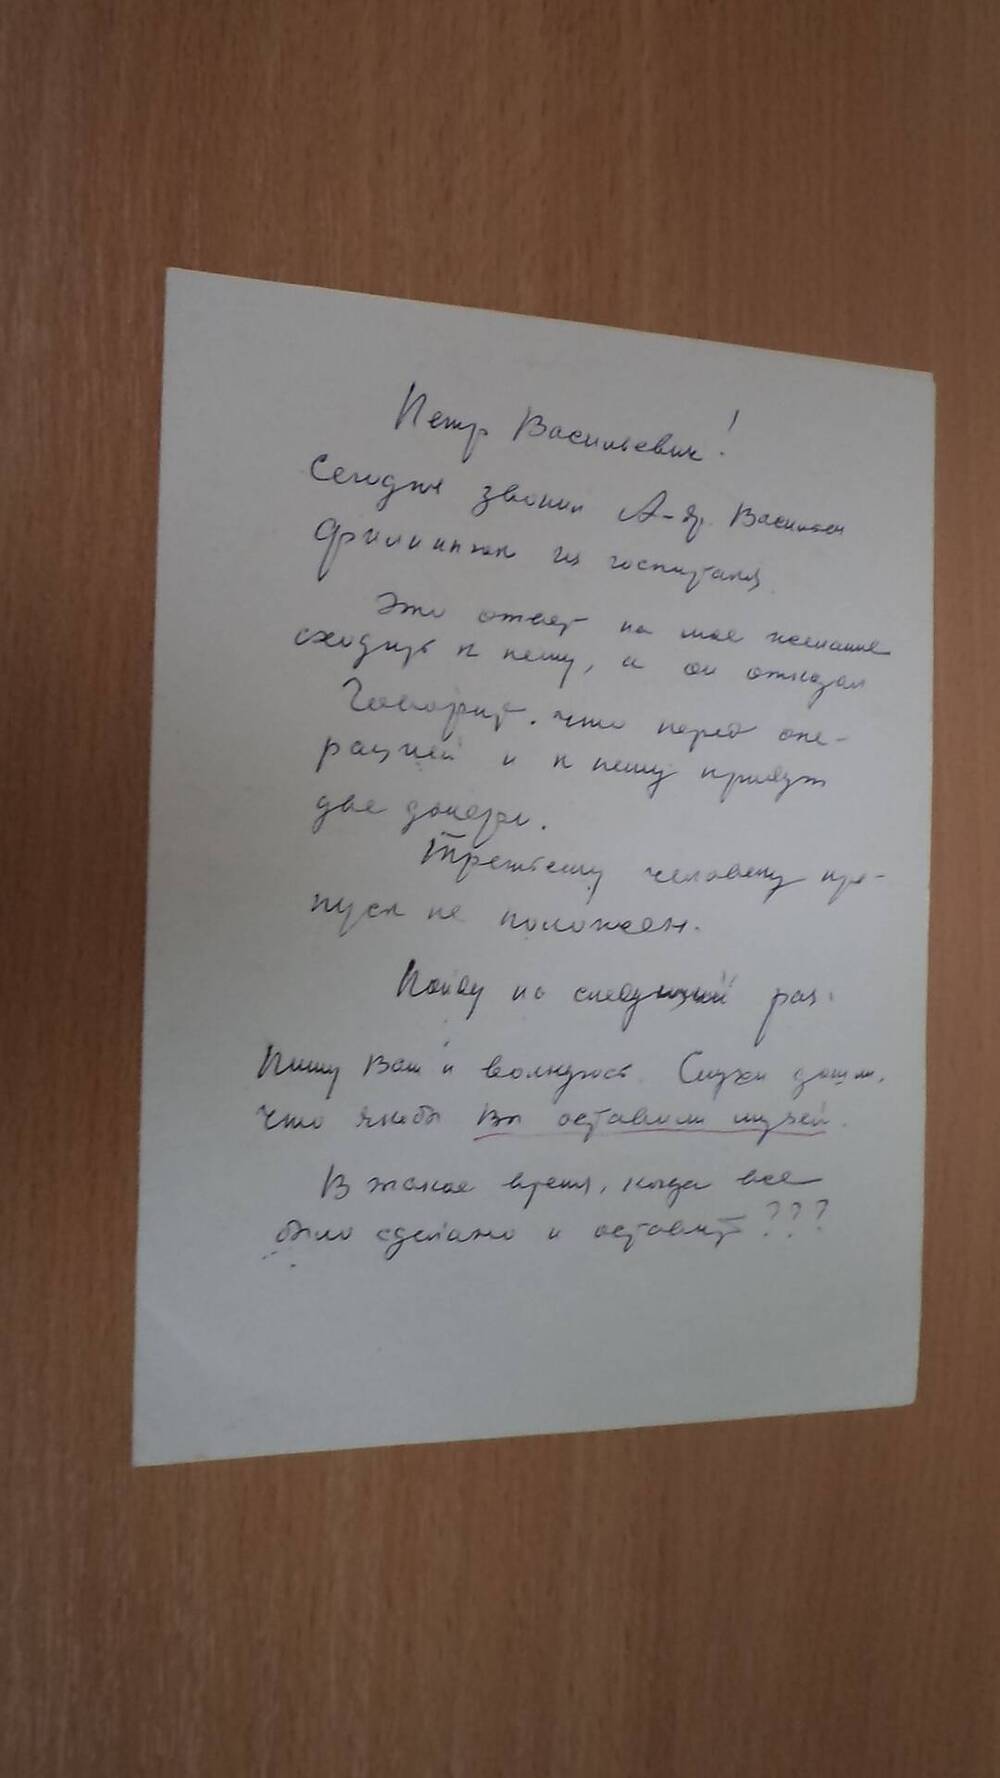 Петр Васильевич!
Сегодня звонил А-др. Васильев
из госпиталя.
Это ответ на мое желание
сходить к нему, а он отказал
Говорит, что перед опе-
рацией и к нему придут
две дочери.
Третьему человеку про-
пуск не положен.
Пойду на следующий раз.
Пишу Вам и волнуюсь. Слухи дошли,
что якобы Вы оставили музей.
В такое время, когда все
было сделано и оставить???